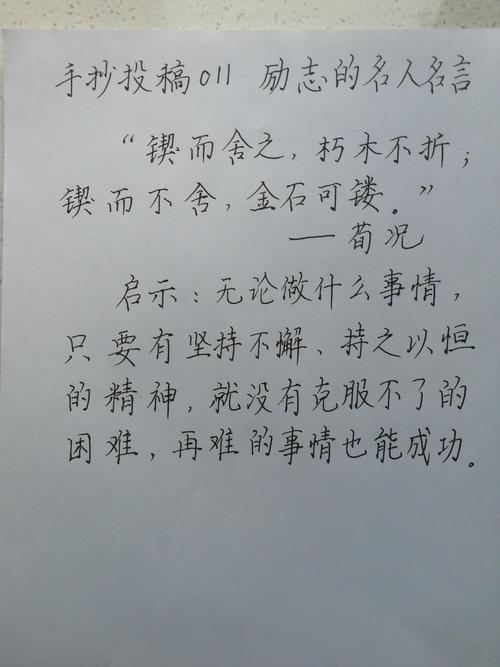 手抄投稿011 励志的名人名言
“锲而舍之，朽木不折；
锲而不舍，金石可镂。”
——荀况
启示：无论做什么事情，
只要有坚持不懈、持之以恒
的精神，就没有克服不了的
困难，再难的事情也能成功。